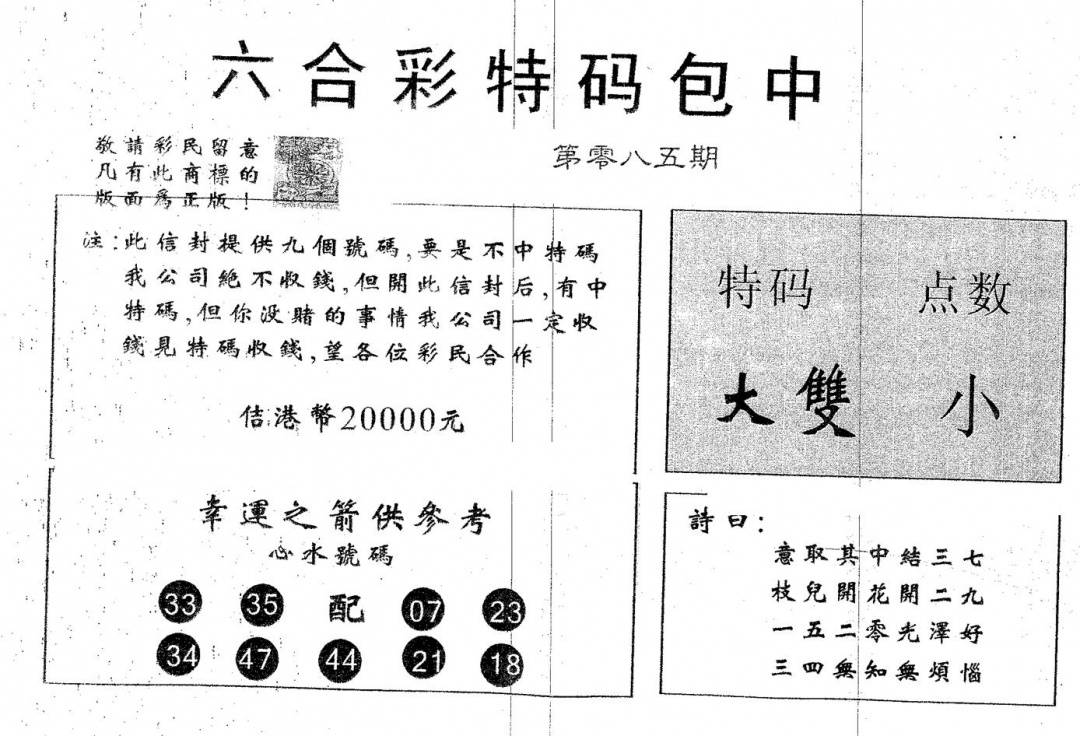 六合彩特码包中
敬請彩民留意
凡有此商標的
版面為正版！
第零八五期
注:此信封提供九個號碼,要是不中特碼
我公司絕不收錢,但開此信封后,有中
特碼,但你没賭的事情我公司一定收
錢見特碼收錢,望各位彩民合作
佶港幣20000元
特码 点数
大雙 小
幸運之箭供參考
心水號碼
33 35 配 07 23
34 47 44 21 18
詩曰:
意取其中結三七
枝兒開花開二九
一五二零光澤好
三四無知無煩惱